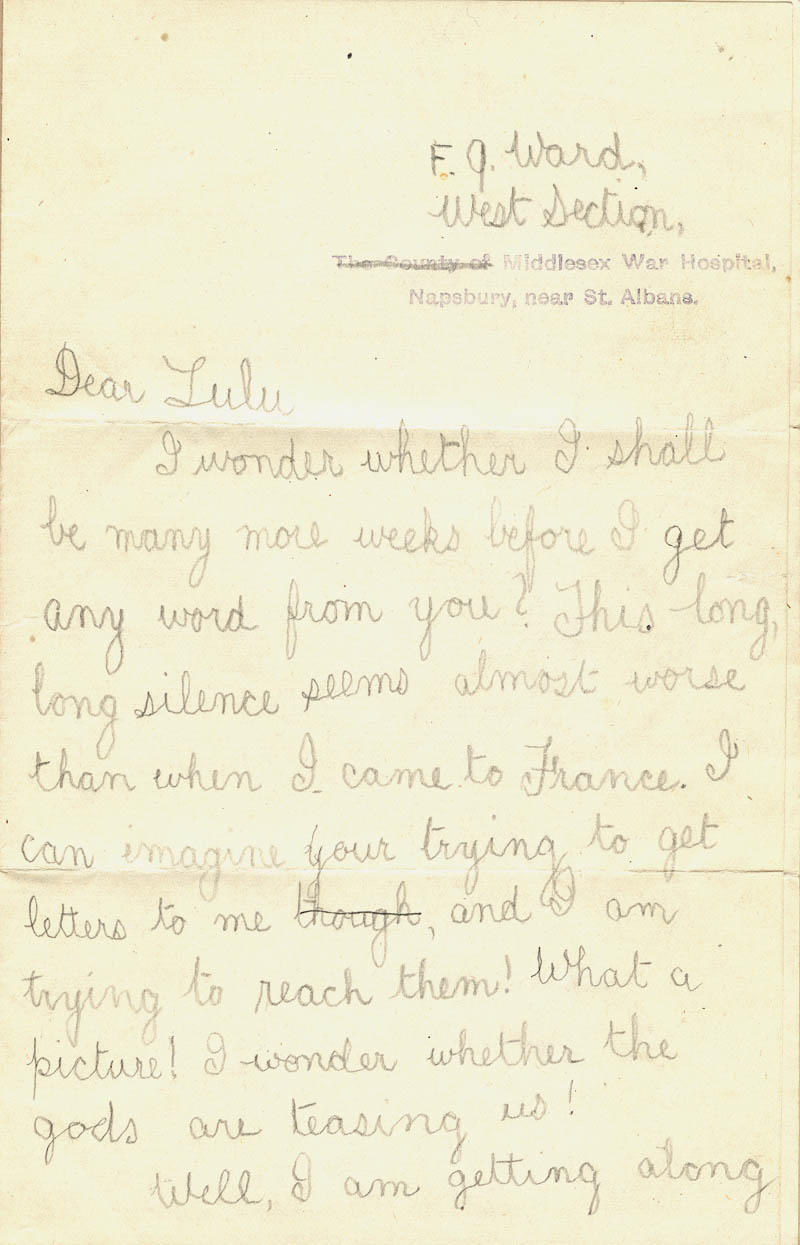 F. J. Ward,
West Section,
The County of Middlesex War Hospital,
Napsbury, near St. Albans.
Dear Lulu
I wonder whether I shall
be many more weeks before I get
any word from you? This long,
long silence seems almost worse
than when I came to France. I
can imagine your trying to get
letters to me though, and I am
trying to reach them! What a
picture! I wonder whether the
gods are teasing us!
Well, I am getting along